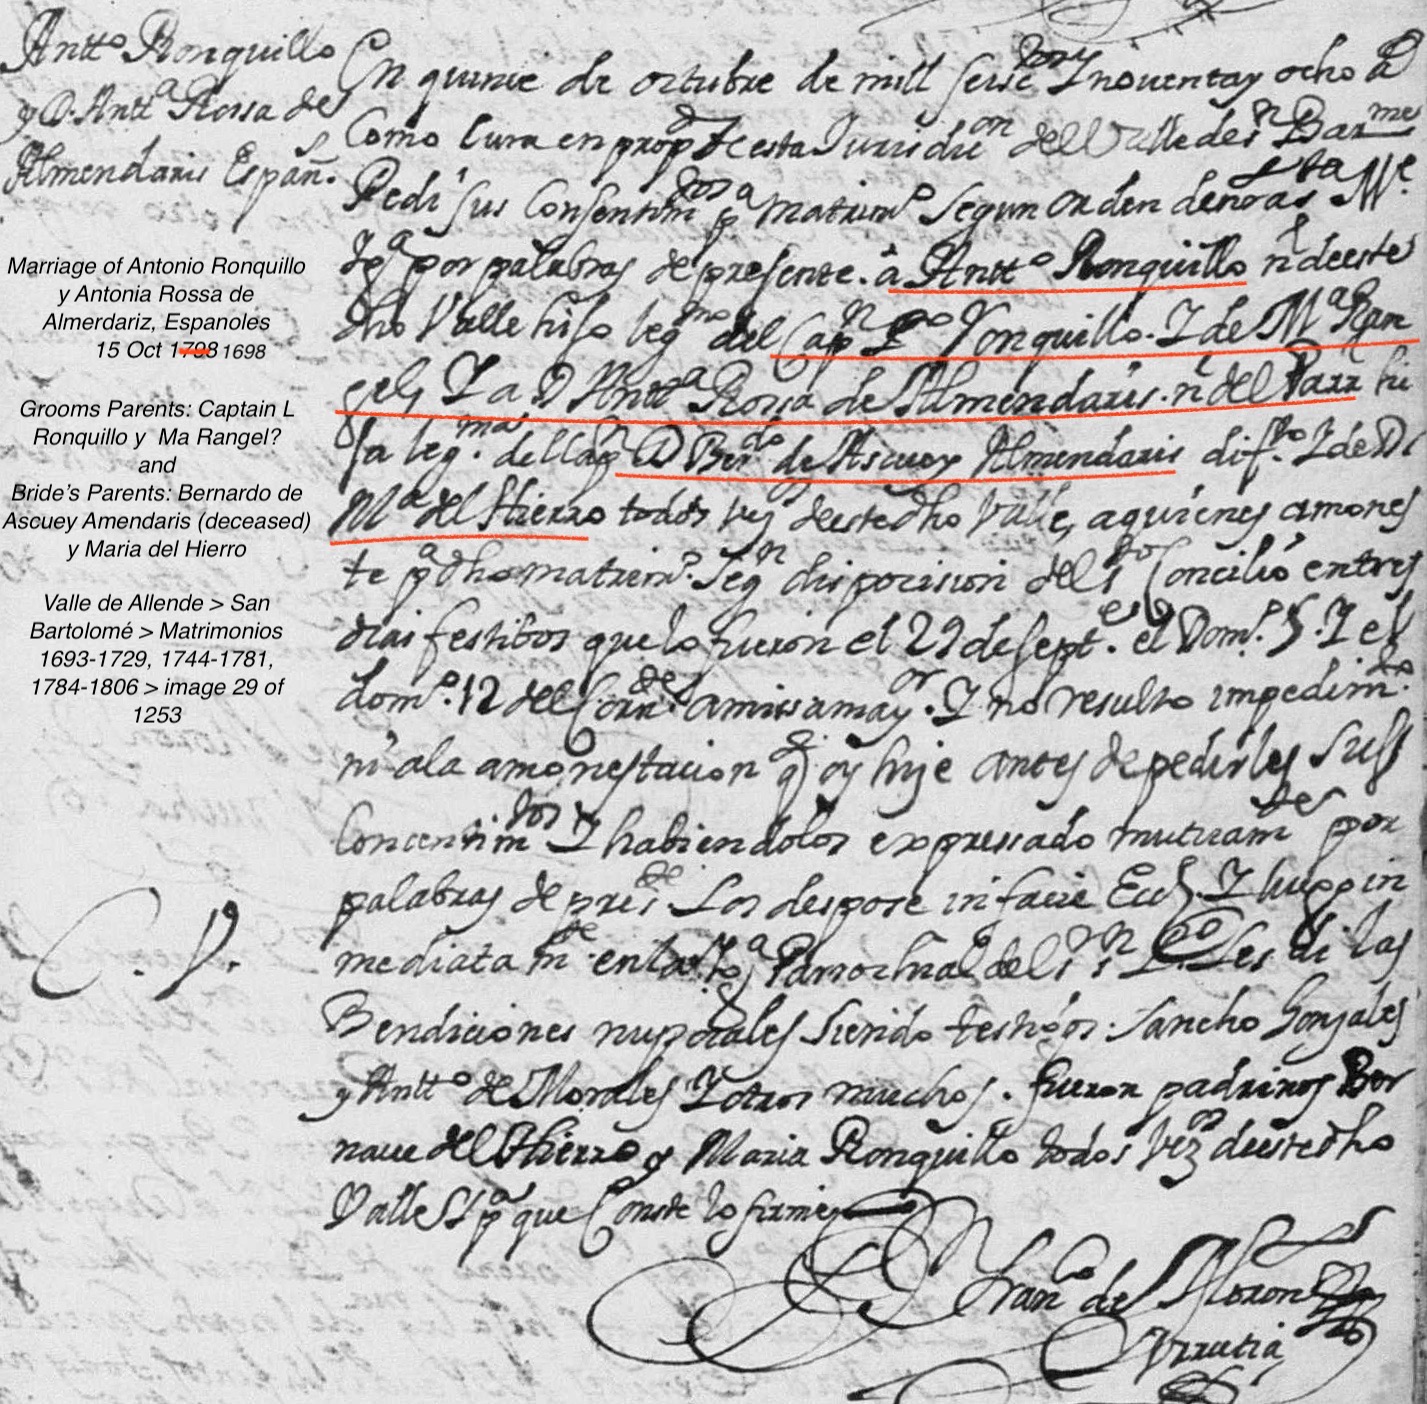 Antt° Ronquillo
y D. Antt.ª Rossa de
Almendaris Españ.s
Marriage of Antonio Ronquillo
y Antonia Rossa de
Almerdariz, Espanoles
15 Oct 1798 1698
Grooms Parents: Captain L
Ronquillo y Ma Rangel?
and
Bride's Parents: Bernardo de
Ascuey Amendaris (deceased)
y Maria del Hierro
Valle de Allende > San
Bartolomé > Matrimonios
1693-1729, 1744-1781,
1784-1806 > image 29 of
1253
C. V.
En quinze de octubre de mill seisc.tos y noventa y ocho
Como Cura en prop.d de esta Jurisdic.on del Valle de S.n Bar.me
Pedi sus Consentim.tos p.ª matrim.º segun orden de nra S.ta M.e
Ygª por palabras de presente. a Antt° Ronquillo n.l de este
dho Valle hijo leg.mo del Cap.n Ronquillo. Y de M.ª Ran
gel, Y a D Antt.ª Rossa de Almendaris. n.l del Parr hi
ja leg.ma del Cap.n D Ber.do de Ascue y Almendaris dif.to Y de D.
M.ª del Hierro todos vez.s de este dho Valle, a quienes amones
te p.ª dho matrim.º Seg.n disposicion del S.to Concilio en tres
dias festibos que lo fueron el 29 de sept.e el Dom.º 5. Y el
dom.º 12 del Corr.te a missa may.or Y no resulto impedim.to
ni a la amonestacion q. oy hije antes de pedirles sus
Concentim.tos Y habiendolos expressado mutuam.te por
palabras de pres.te Los despose in facie Eccl. Y luego in
mediatam.te en la Parrochial del S.r S.n Les di las
Bendiciones nupciales siendo testigos. Sancho Gonsales
y Antt° de Morales Y otros muchos. fueron padrinos Ber
nave del Hierro y Maria Ronquillo todos vez.os de este dho
Valle Y p.ª que Conste lo firme
Fran.co de Moron
Urrutia